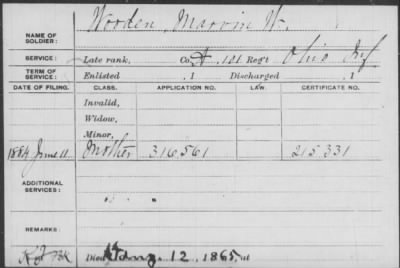 NAME OF SOLDIER: Worden, Marvin W.
SERVICE: Late rank, Co. A, 101 Reg't Ohio Inf
TERM OF SERVICE: Enlisted , 1 Discharged , 1
DATE OF FILING. CLASS. APPLICATION NO. LAW. CERTIFICATE NO.
Invalid,
Widow,
Minor,
1884 June 11 Mother 316561 215331
ADDITIONAL SERVICES:
REMARKS:
Died 12, 1865, at